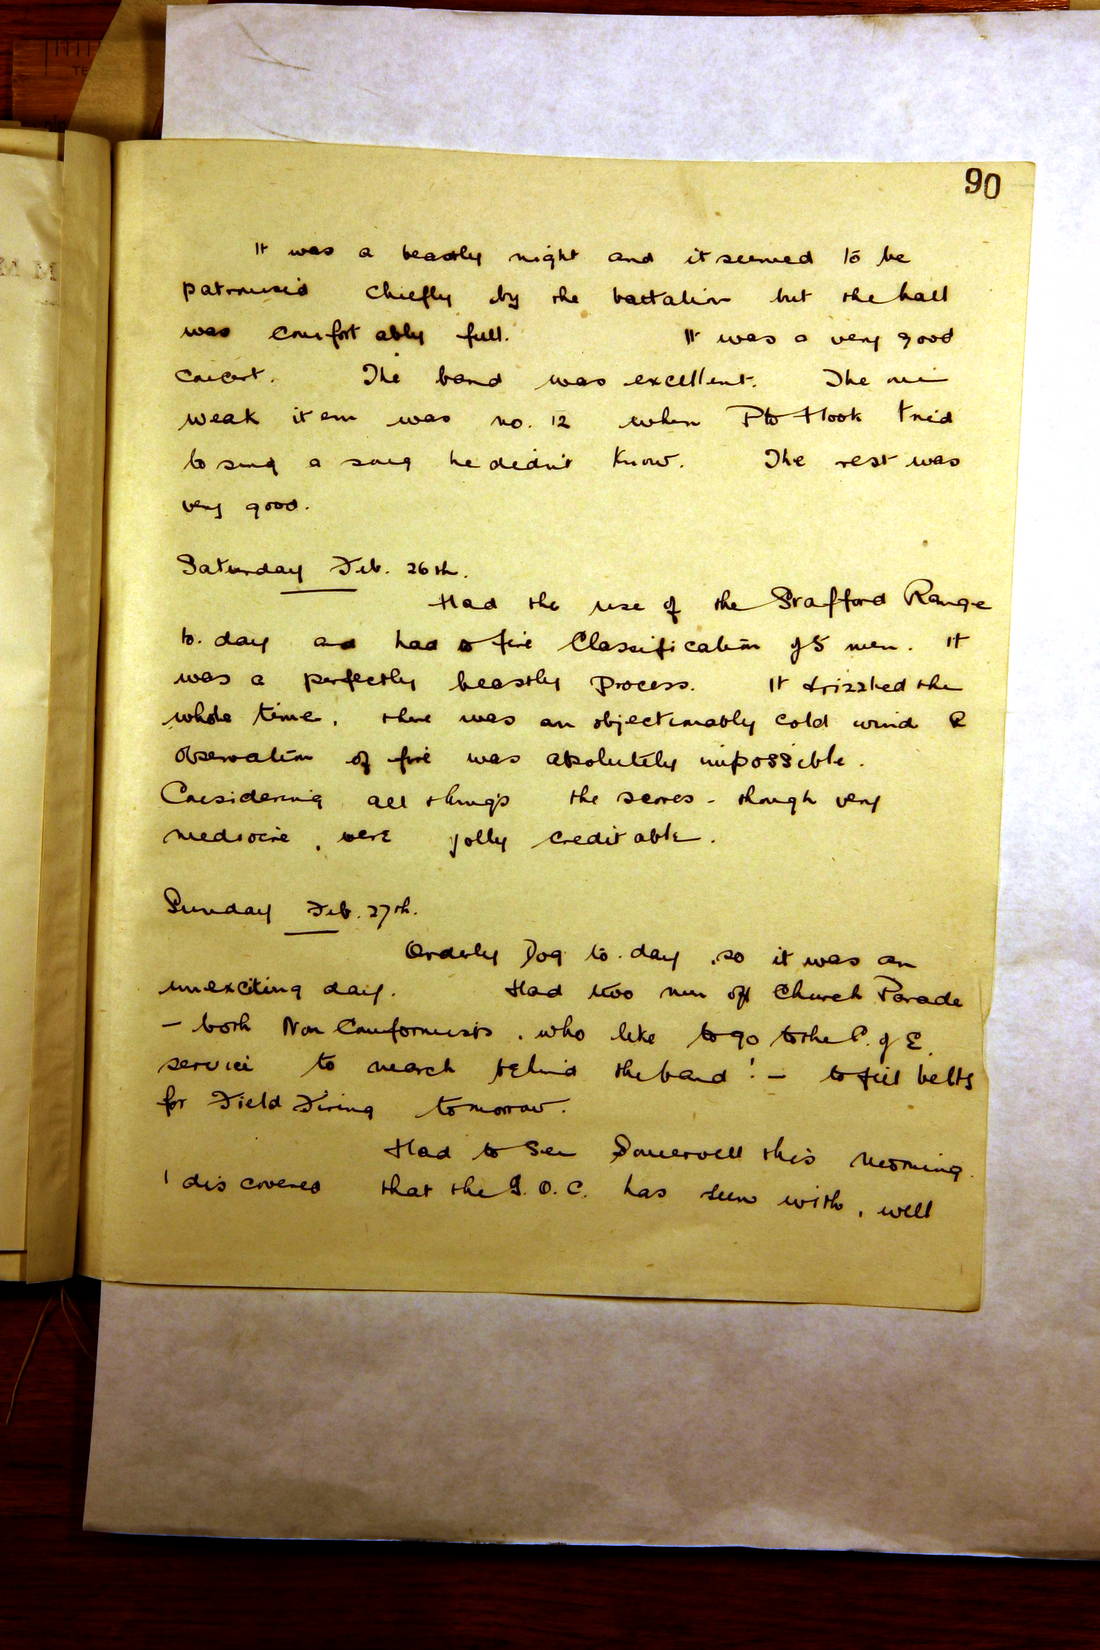 90
It was a beastly night and it seemed to be
patronised chiefly by the battalion but the hall
was comfortably full. It was a very good
concert. The band was excellent. The one
weak item was no. 12 when Pte Hook tried
to sing a song he didn't know. The rest was
very good.
Saturday Feb. 26th.
Had the use of the Strafford Range
to.day and had to fire Classification of 5 men. It
was a perfectly beastly process. It drizzled the
whole time, there was an objectionably cold wind &
observation of fire was absolutely impossible.
Considering all things the scores - though very
mediocre, were jolly creditable.
Sunday Feb. 27th.
Orderly Dog to.day, so it was an
unexciting day. Had two men off Church Parade
- both Non Conformists, who like to go to the C. of E.
service to march behind the band! - to fill belts
for Field Firing tomorrow.
Had to see Somervell this morning.
I discovered that the G.O.C. has seen with, well